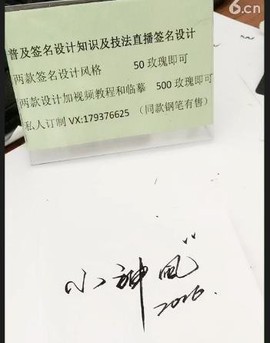 6.cn
普及签名设计知识及技法直播签名设计
两款签名设计风格 50 玫瑰即可
两款设计加视频教程和临摹 500 玫瑰即可
私人订制 VX:179376625 (同款钢笔有售)
小神风
2026.